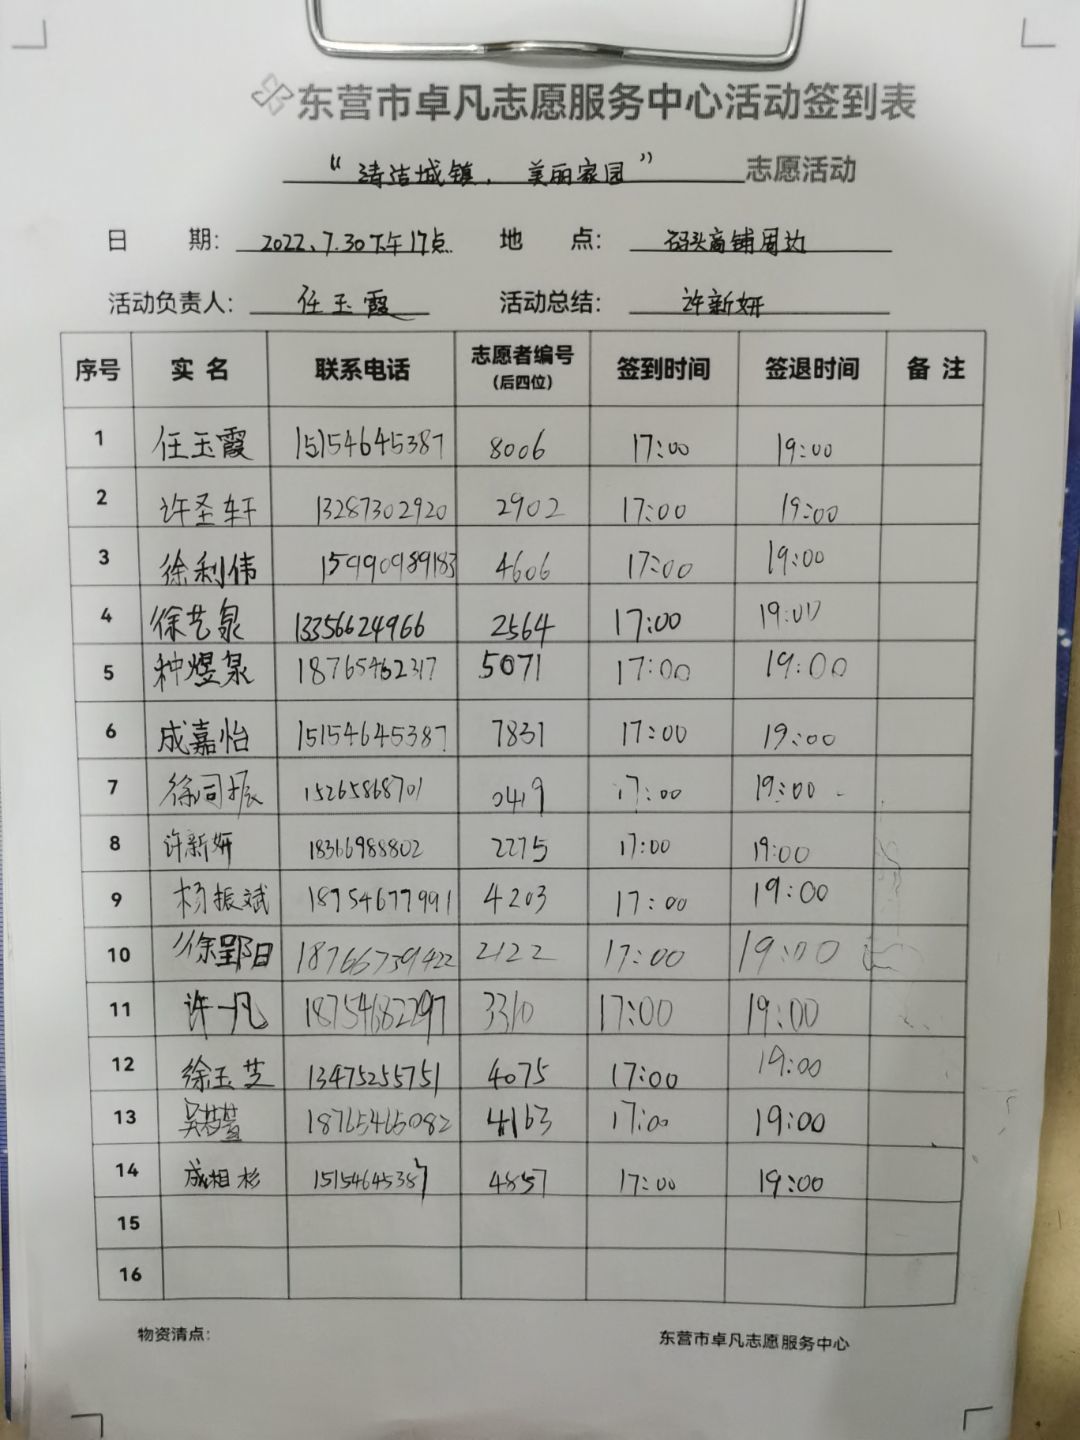 东营市卓凡志愿服务中心活动签到表
“清洁城镇，美丽家园” 志愿活动
日 期： 2022、7.30下午17点 地 点： 码头商铺周边
活动负责人： 任玉霞 活动总结： 许新妍
序号 实名 联系电话 志愿者编号（后四位） 签到时间 签退时间 备注
1 任玉霞 15154645387 8006 17:00 19:00
2 许圣轩 13287302920 2902 17:00 19:00
3 徐利伟 15990989183 4606 17:00 19:00
4 徐艺泉 13356624966 2564 17:00 19:00
5 种煜泉 18765462317 5071 17:00 19:00
6 成嘉怡 15154645387 7831 17:00 19:00
7 徐同振 15265868701 0419 17:00 19:00
8 许新妍 18366988802 2275 17:00 19:00
9 杨振斌 18754677991 4203 17:00 19:00
10 徐郢日 18766739422 2122 17:00 19:00
11 许一凡 18754682297 3310 17:00 19:00
12 徐玉芝 13475255751 4075 17:00 19:00
13 18765465082 4163 17:00 19:00
14 成相杉 15154645387 4857 17:00 19:00
15
16
物资清点： 东营市卓凡志愿服务中心